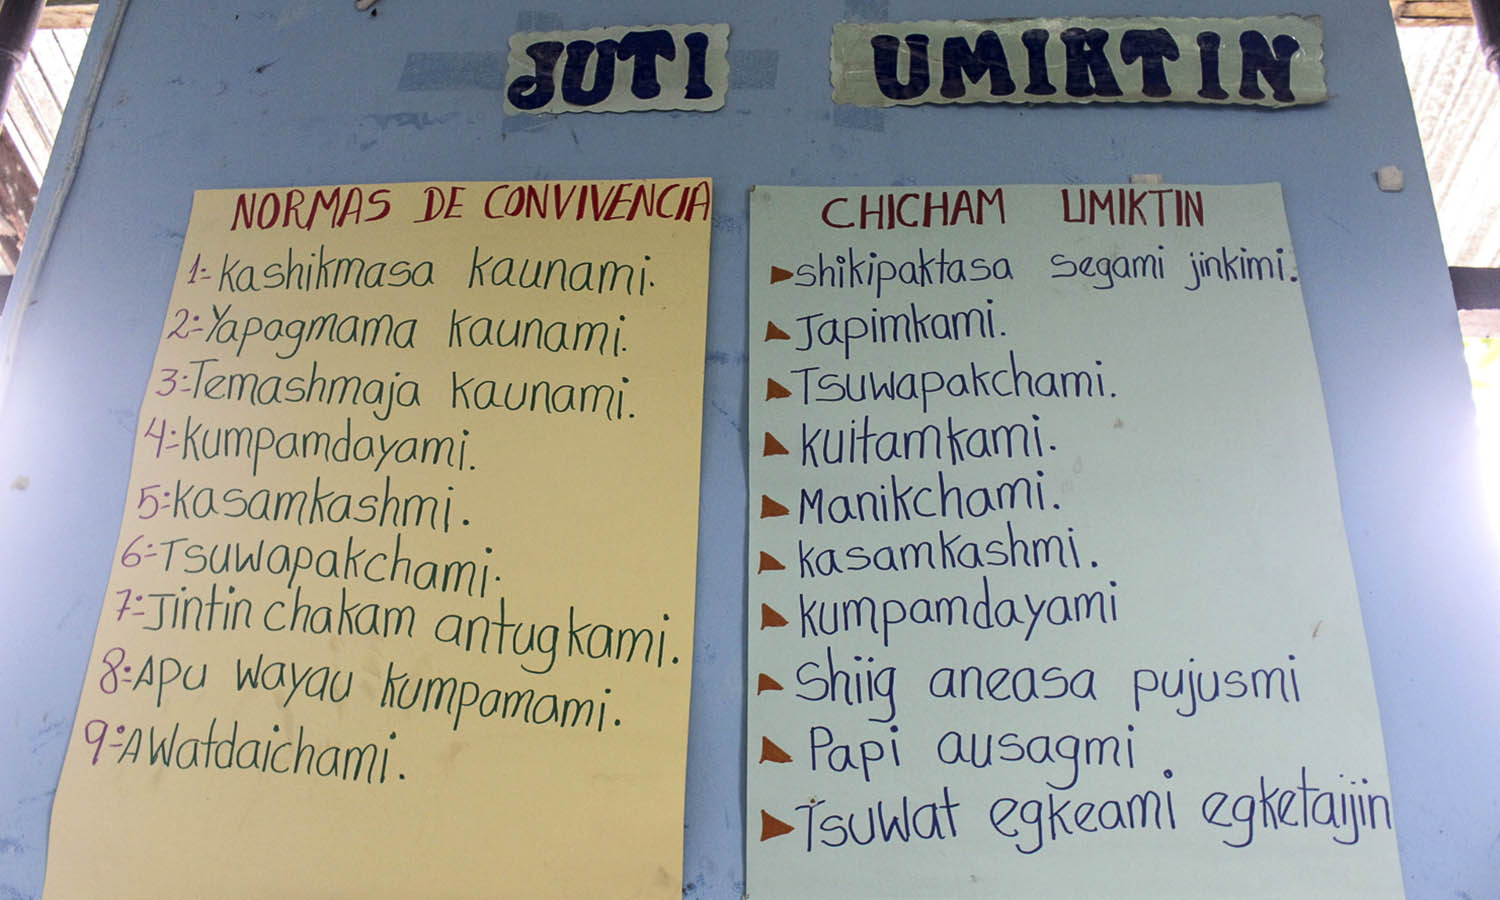 JUTI UMIKTIN
NORMAS DE CONVIVENCIA
1-Kashikmasa kaunami.
2-Yapagmama kaunami.
3-Temashmaja kaunami.
4-Kumpamdayami.
5-Kasamkashmi.
6-Tsuwapakchami.
7-Jintin chakam antugkami.
8-Apu wayau kumpamami.
9-Awatdaichami.
CHICHAM UMIKTIN
shikipaktasa segami jinkimi.
Japimkami.
Tsuwapakchami.
kuitamkami.
Manikchami.
kasamkashmi.
kumpamdayami
Shiig aneasa pujusmi
Papi ausagmi
Tsuwat egkeami egketaijin